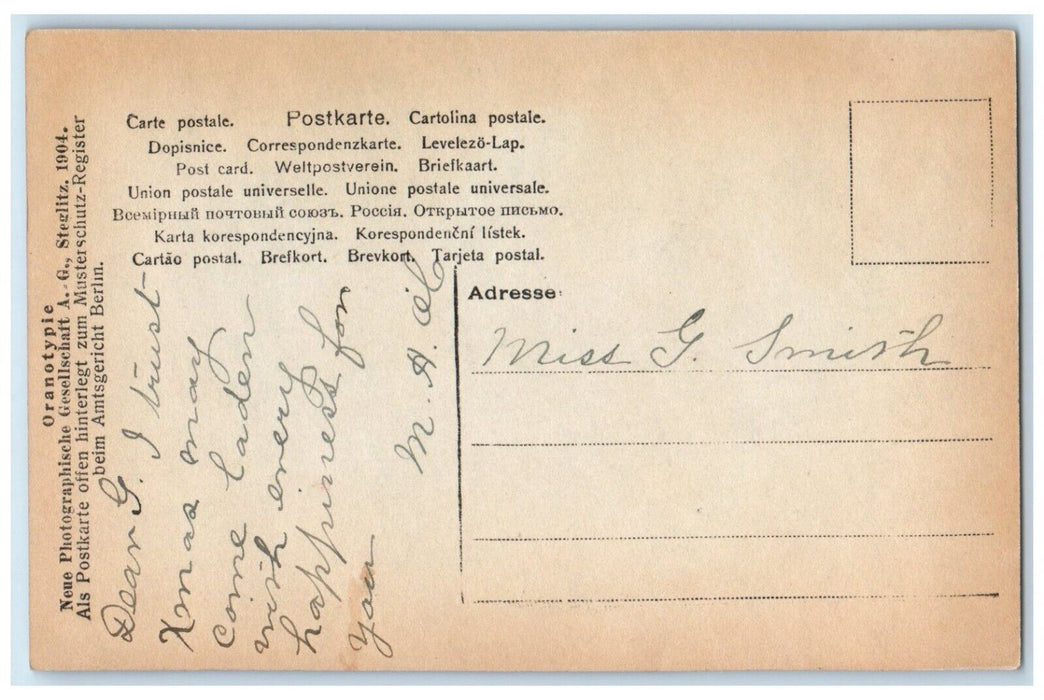 Oranotypie
Neue Photographische Gesellschaft A.-G., Steglitz. 1904.
Als Postkarte offen hinterlegt zum Musterschutz-Register
beim Amtsgericht Berlin.
Carte postale. Postkarte. Cartolina postale.
Dopisnice. Correspondenzkarte. Levelező-Lap.
Post card. Weltpostverein. Briefkaart.
Union postale universelle. Unione postale universale.
Всемірный почтовый союзъ. Россія. Открытое письмо.
Karta korespondencyjna. Korespondenční lístek.
Cartão postal. Brefkort. Brevkort. Tarjeta postal.
Dear G. I trust
Xmas may
come laden
with every
happiness for
you
M. A.
Adresse:
Miss G. Smith